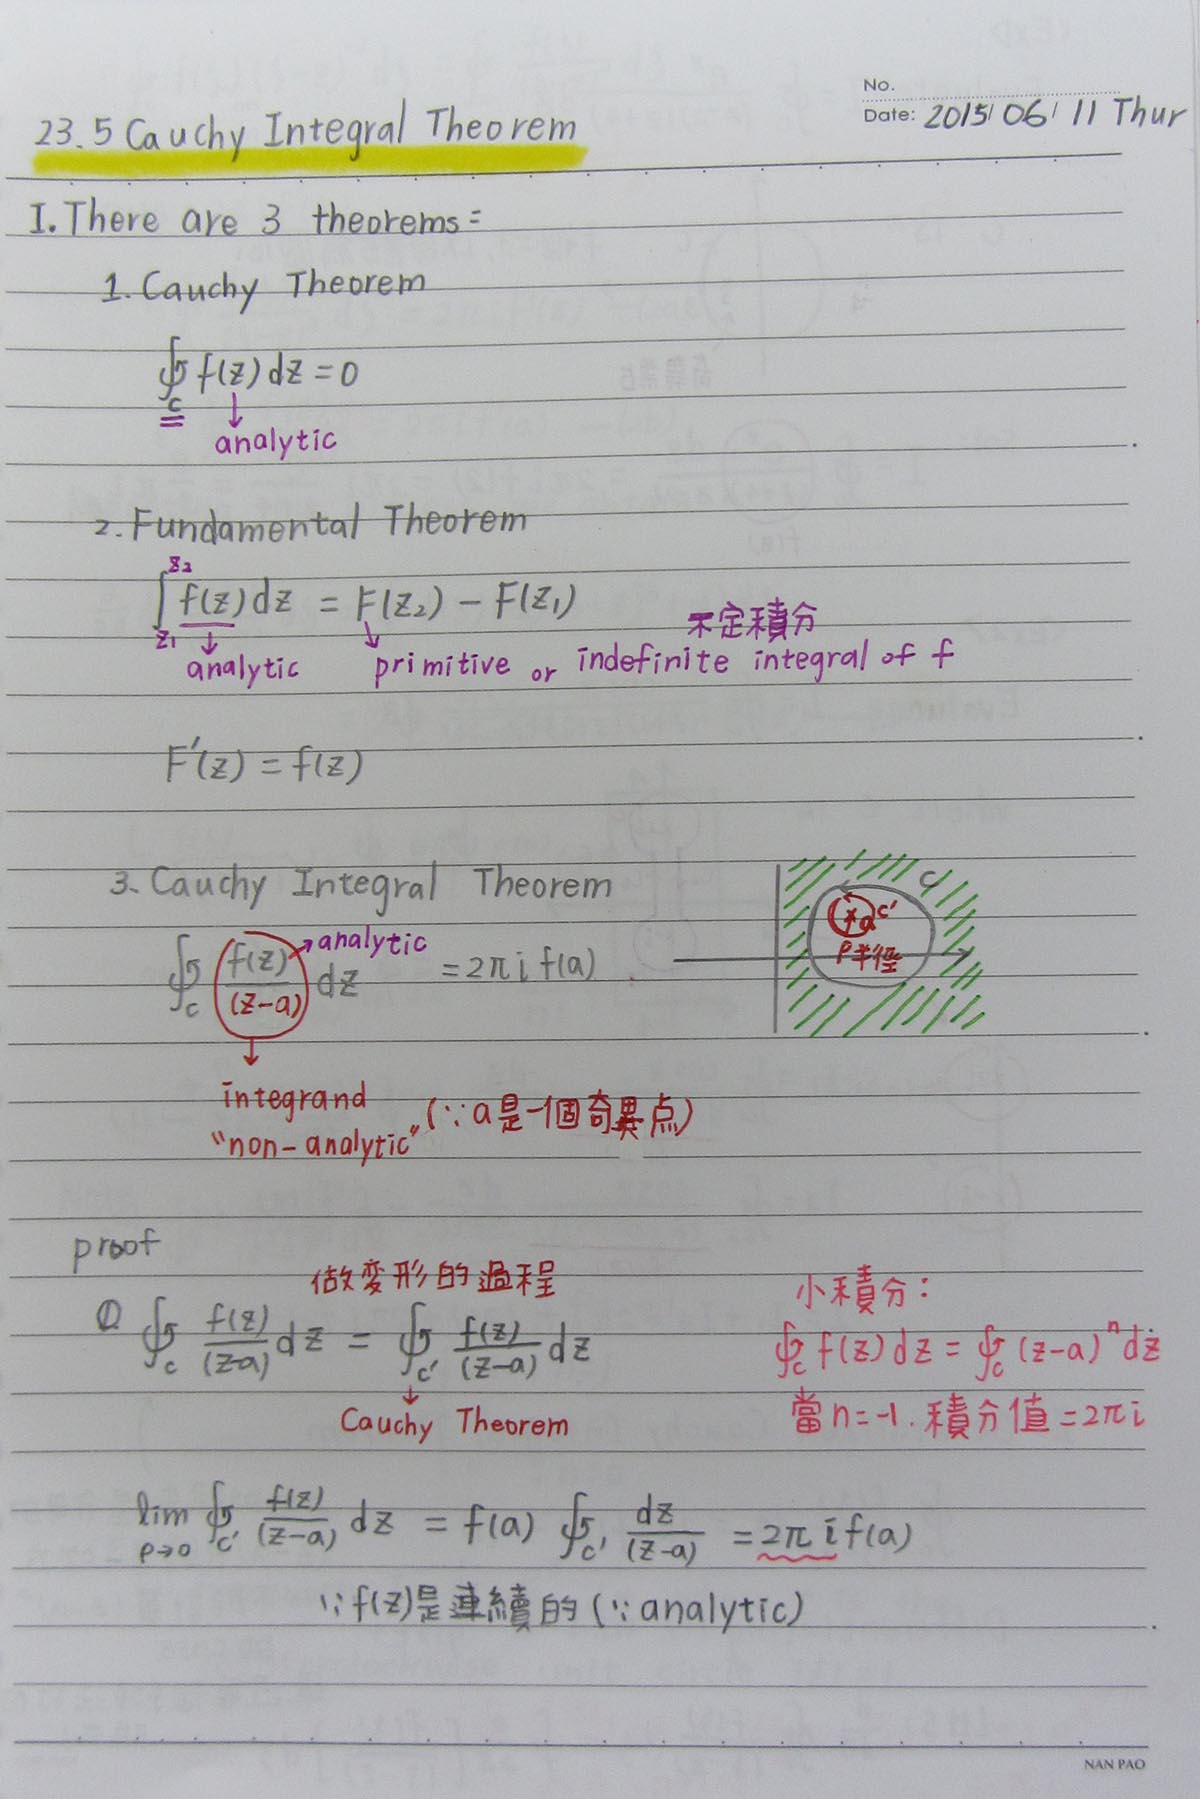 No.
Date: 2015/06/11 Thur
23.5 Cauchy Integral Theorem
I. There are 3 theorems:
1. Cauchy Theorem
∮_c f(z)dz = 0
analytic
2. Fundamental Theorem
∫_{z1}^{z2} f(z)dz = F(z₂) − F(z₁)
不定積分
analytic primitive or indefinite integral of f
F'(z) = f(z)
3. Cauchy Integral Theorem
c
analytic
a c'
∮_c f(z)/(z-a) dz = 2πi f(a)
ρ半徑
integrand
"non-analytic" (∵a是一個奇異点)
proof
做變形的過程
小積分:
① ∮_c f(z)/(z-a) dz = ∮_c' f(z)/(z-a) dz
∮_c f(z)dz = ∮_c (z-a)^n dz
Cauchy Theorem
當n=-1. 積分值=2πi
lim_{ρ→0} ∮_c' f(z)/(z-a) dz = f(a) ∮_c' dz/(z-a) = 2πi f(a)
∵f(z)是連續的(∵analytic)
NAN PAO